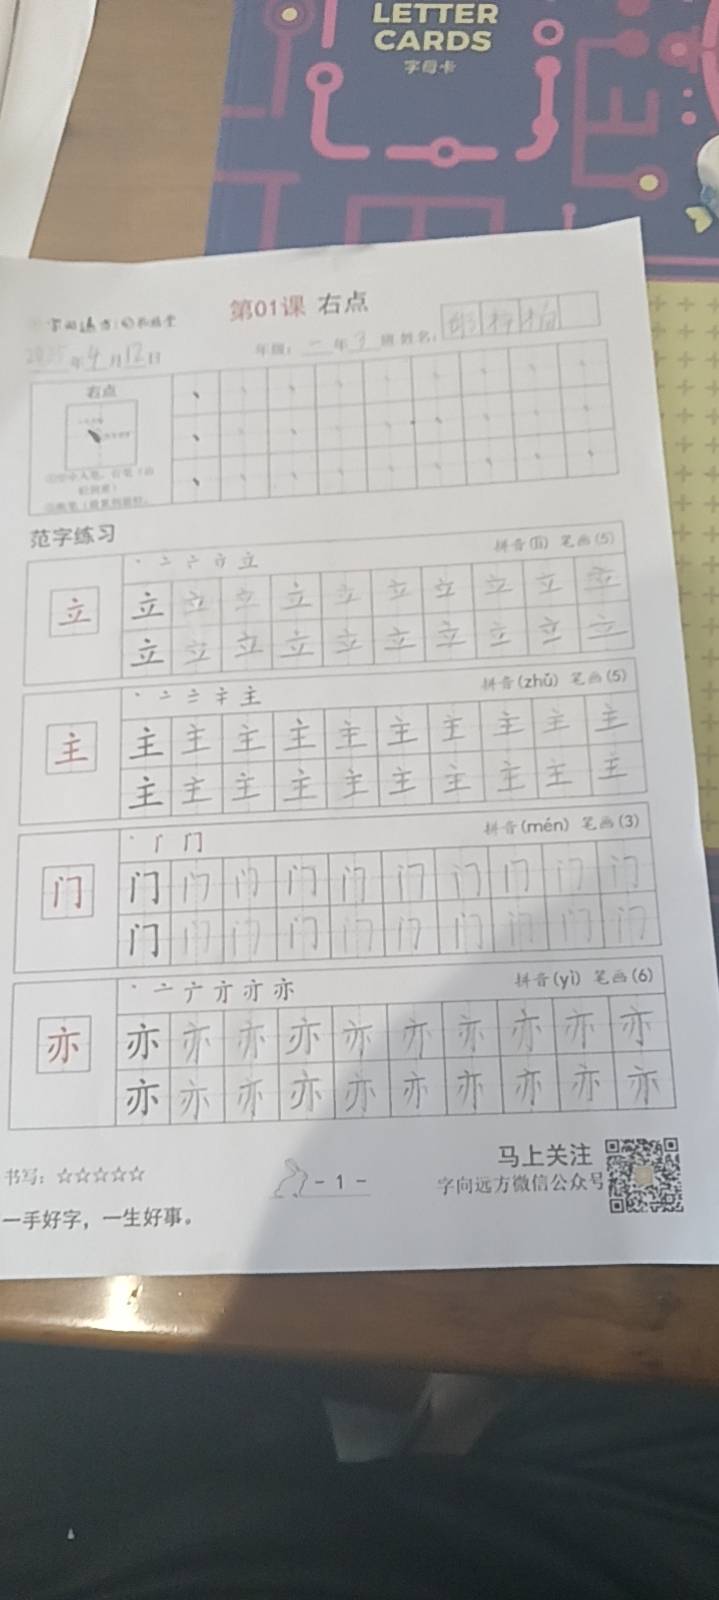 LETTER
CARDS
字母卡
第01课 右点
2025年4月12日
年级：二年3班 姓名：
右点
范字练习
拼音(lì) 笔画(5)
立
立 立 立 立 立 立 立 立 立 立
立 立 立 立 立 立 立 立 立 立
拼音(zhǔ) 笔画(5)
主
主 主 主 主 主 主 主 主 主 主
主 主 主 主 主 主 主 主 主 主
拼音(mén) 笔画(3)
门
门 门 门 门 门 门 门 门 门 门
门 门 门 门 门 门 门 门 门 门
拼音(yì) 笔画(6)
亦
亦 亦 亦 亦 亦 亦 亦 亦 亦 亦
亦 亦 亦 亦 亦 亦 亦 亦 亦 亦
马上关注
书写：☆☆☆☆☆
- 1 -
字向远方微信公众号
一手好字，一生好事。